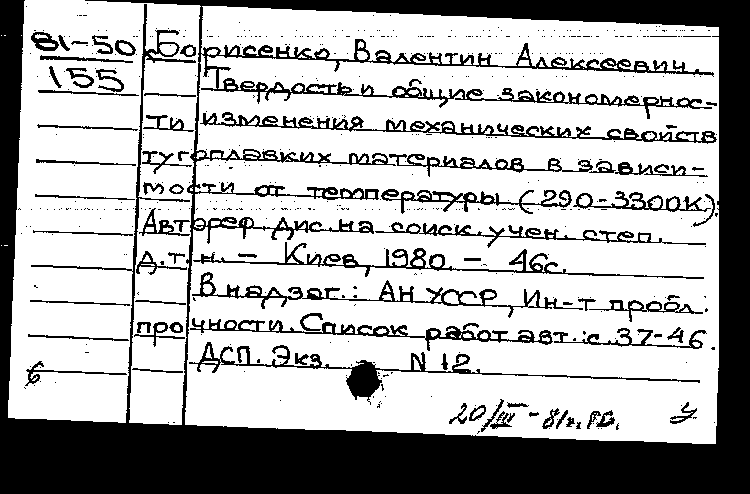 81-50 Борисенко, Валентин Алексеевич.
155 Твердость и общие закономернос-
ти изменения механических свойств
тугоплавких материалов в зависи-
мости от температуры (290-3300К):
Автореф. дис. на соиск. учен. степ.
д.т.н. - Киев, 1980. - 46с.
В надзаг.: АН УССР, Ин-т пробл.
прочности. Список работ авт.: с. 37-46.
ДСП. Экз. N 12.
20/III - 81г.